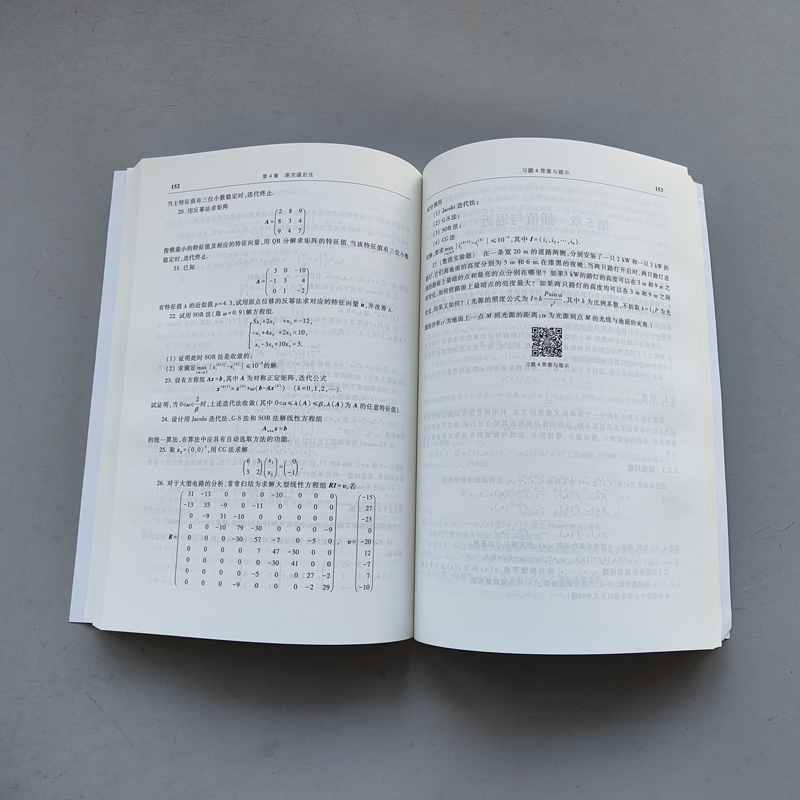 152
第 4 章 逐次逼近法
当主特征值有三位小数稳定时,迭代终止.
20. 用反幂法求矩阵
A=
2 8 9
8 3 4
9 4 7
按模最小的特征值及相应的特征向量,用 QR 分解求矩阵的特征值,当该特征值有三位小数
稳定时,迭代终止.
21. 已知
A=
3 0 -10
-1 3 4
0 1 -2
有特征值 λ 的近似值 p=4.3,试用原点位移的反幂法求对应的特征向量 u,并改善 λ.
22. 试用 SOR 法(取 ω=0.9)解方程组
5x₁+2x₂ +x₃=-12,
-x₁+4x₂ +2x₃=10,
x₁-3x₂+10x₃=3.
(1) 证明此时 SOR 法是收敛的;
(2) 求满足
的解.
23. 设有方程组 Ax=b,其中 A 为对称正定矩阵,迭代公式
x⁽ᵏ⁺¹⁾=x⁽ᵏ⁾+ω(b-Ax⁽ᵏ⁾) (k=0,1,2,⋯).
试证明:当 0<ω<2/β时,上述迭代法收敛(其中 0<α≤λ(A)≤β,λ(A) 为 A 的任意特征值).
24. 设计用 Jacobi 迭代法、G-S 法和 SOR 法解线性方程组
Aₙₓₙx=b
的统一算法,在算法中应具有自动选取方法的功能.
25. 取 x₀=(0,0)ᵀ,用 CG 法求解
6 3 x₁ 0
3 2 x₂ = -1 .
26. 对于大型电路的分析,常常归结为求解大型线性方程组 RI=v,若
31 -13 0 0 0 -10 0 0 0 -15
-13 35 -9 0 -11 0 0 0 0 27
0 -9 31 -10 0 0 0 0 0 -23
0 0 -10 79 -30 0 0 0 -9 0
R= 0 0 0 -30 57 -7 0 -5 0 , v= -20
0 0 0 0 7 47 -30 0 0 12
0 0 0 0 0 -30 41 0 0 -7
0 0 0 0 -5 0 0 27 -2 7
0 0 0 -9 0 0 0 -2 29 -10
习题 4 答案与提示
153
(1) Jacobi 迭代法;
(2) G-S 法;
(3) SOR 法;
(4) CG 法
27. (数值实验题) 在一条宽 20 m 的道路两侧,分别安装了一只 2 kW 和一只 3 kW 的
路灯,它们离地面的高度分别为 5 m 和 6 m.在漆黑的夜晚,当两只路灯开启时,两只路灯连
线的路面上最暗的点和最亮的点分别在哪里? 如果 3 kW 的路灯的高度可以在 3 m 和 9 m 之
间变化,如何使路面上最暗点的亮度最大? 如果两只路灯的高度均可以在 3 m 和 9 m 之间
变化,结果又如何?
习题 4 答案与提示